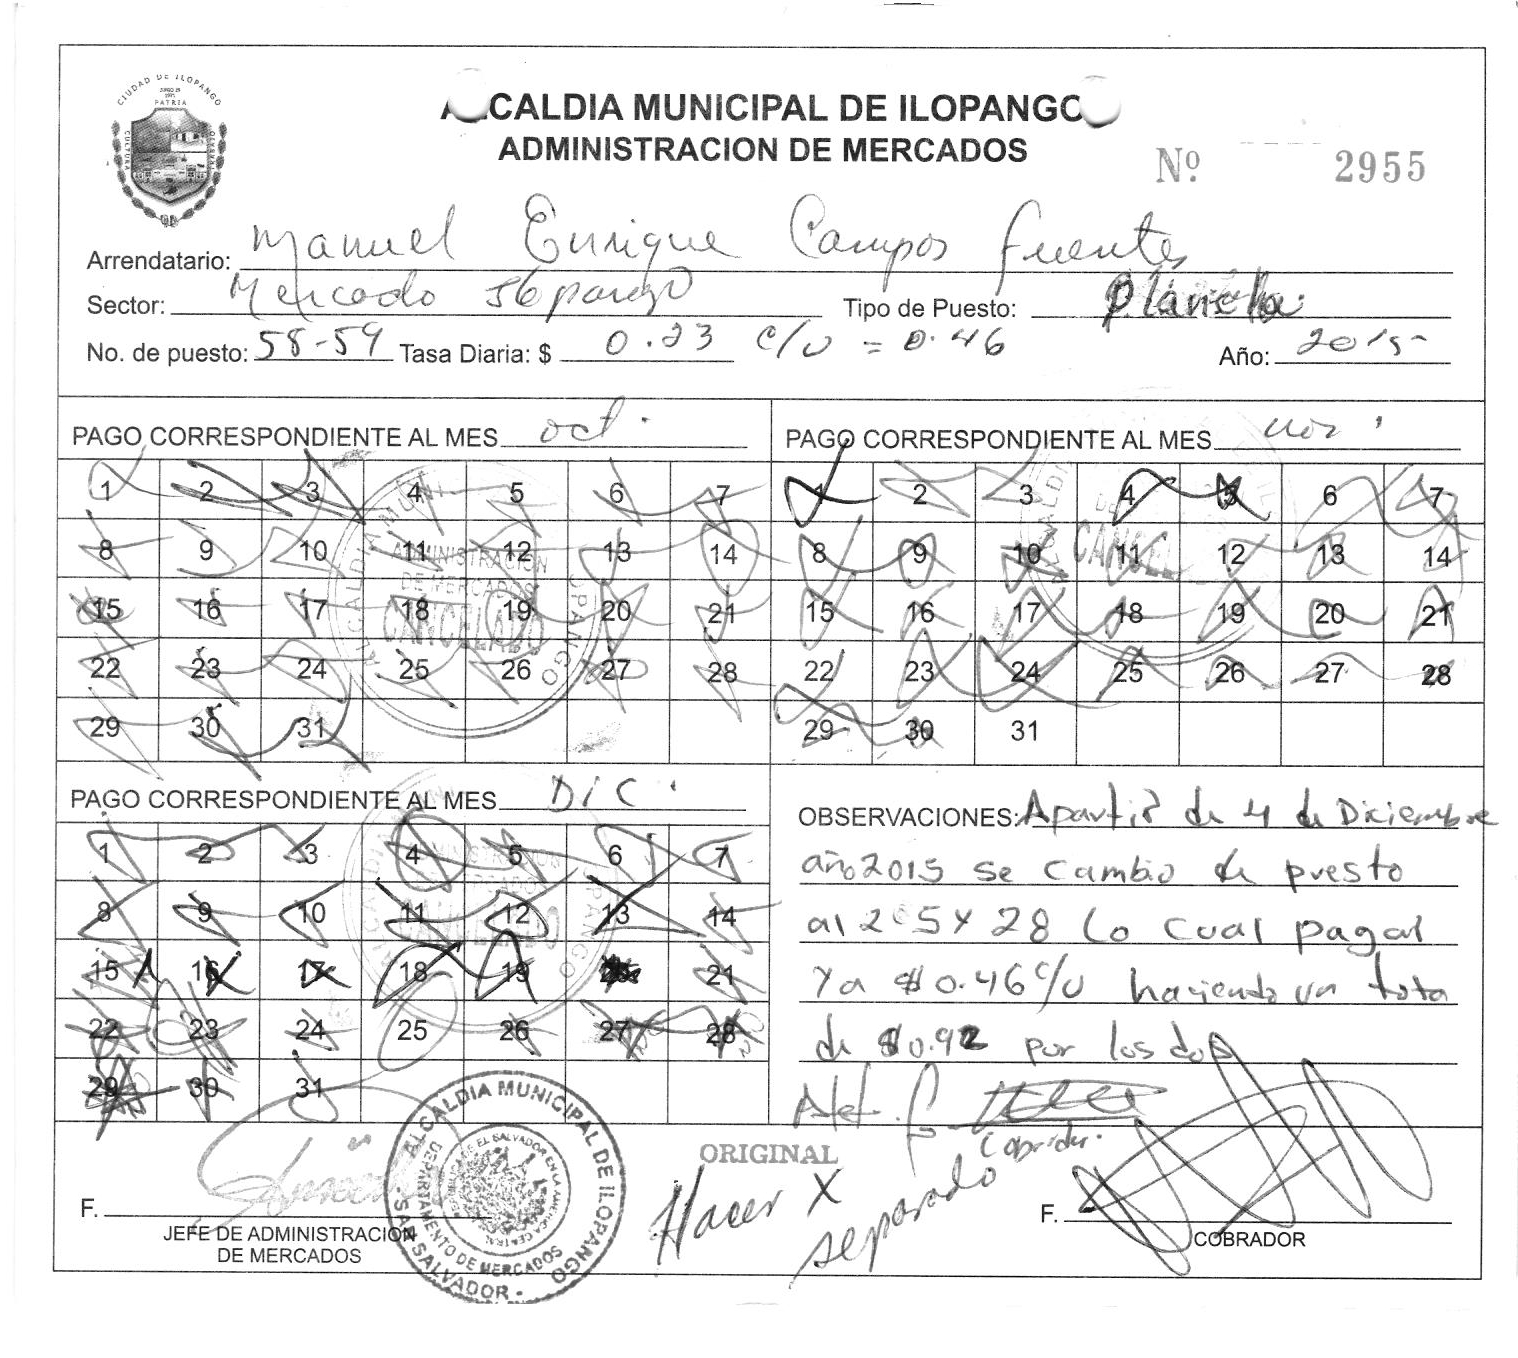 CIUDAD DE ILOPANGO
PATRIA
CULTURA
ALCALDIA MUNICIPAL DE ILOPANGO
ADMINISTRACION DE MERCADOS
Nº 2955
Arrendatario: Manuel Enrique Campos Fuentes
Sector: Mercado Tipo de Puesto: Plancha
No. de puesto: 58-59 Tasa Diaria: $ 0.23 c/u = 0.46 Año: 2015
PAGO CORRESPONDIENTE AL MES oct.
1 2 3 4 5 6 7
8 9 10 11 12 13 14
15 16 17 18 19 20 21
22 23 24 25 26 27 28
29 30 31
ADMINISTRACION
DE MERCADOS
CANCELADO
PAGO CORRESPONDIENTE AL MES nov.
1 2 3 4 5 6 7
8 9 10 11 12 13 14
15 16 17 18 19 20 21
22 23 24 25 26 27 28
29 30 31
PAGO CORRESPONDIENTE AL MES DIC.
1 2 3 4 5 6 7
8 9 10 11 12 13 14
15 16 17 18 19 20 21
22 23 24 25 26 27 28
29 30 31
OBSERVACIONES: Apartir de 4 de Diciembre
año 2015 se cambio de puesto
al 2 5 y 28 Lo cual pagal
ya $0.46 c/u haciendo un tota
de $0.92 por los dos
Cobrador.
ORIGINAL
Hacer X
separado
F.
JEFE DE ADMINISTRACION
DE MERCADOS
ALCALDIA MUNICIPAL DE ILOPANGO
DEPARTAMENTO DE MERCADOS
REPUBLICA DE EL SALVADOR EN LA AMERICA CENTRAL
SAN SALVADOR
F.
COBRADOR